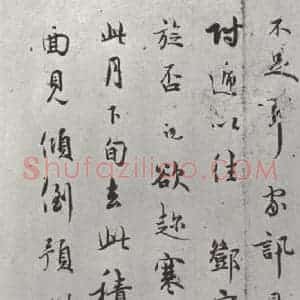 不足軍家訊
付遞以往 鄧
旌否 欲趂寒
此月下旬去此積
面見傾倒預
Shufaziliao.COM